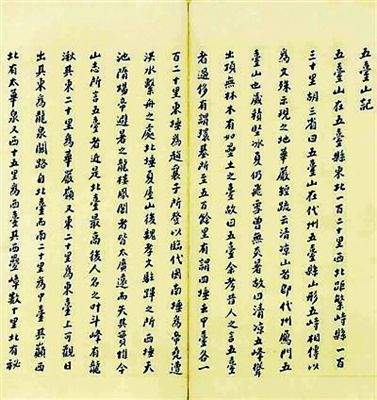 五臺山記
五臺山在五臺縣東北一百二十里西北距繁峙縣一百
三十里胡三省曰五臺山在代州五臺縣山形五峙相傳以
為文殊示現之地華嚴經疏云清涼山者即代州鴈門五
臺山也歲積堅冰夏仍飛雪曾無炎暑故曰清涼五峰聳
出頂無林木有如壘土之臺故曰五臺余考昔人之言五臺
者過侈有謂環基所至五百餘里有謂四埵去中臺各一
百二十里東埵為趙襄子所登以臨代國南埵為帝堯遭
洪水繫舟之處北埵夏屋山後魏孝文駐蹕之所西埵天
池隋煬帝避暑之龍樓鳳閣者皆太廣遠而失其實惟今
山志所言五臺者近是北臺最高後人名之叶斗峰有龍
湫其東二十里為華嚴嶺又東二十里為東臺上可觀日
出其東為龍泉關路自北臺而南二十里為中臺其巔西
北有太華泉又西十五里為西臺其西疊嶂數十里北有祕